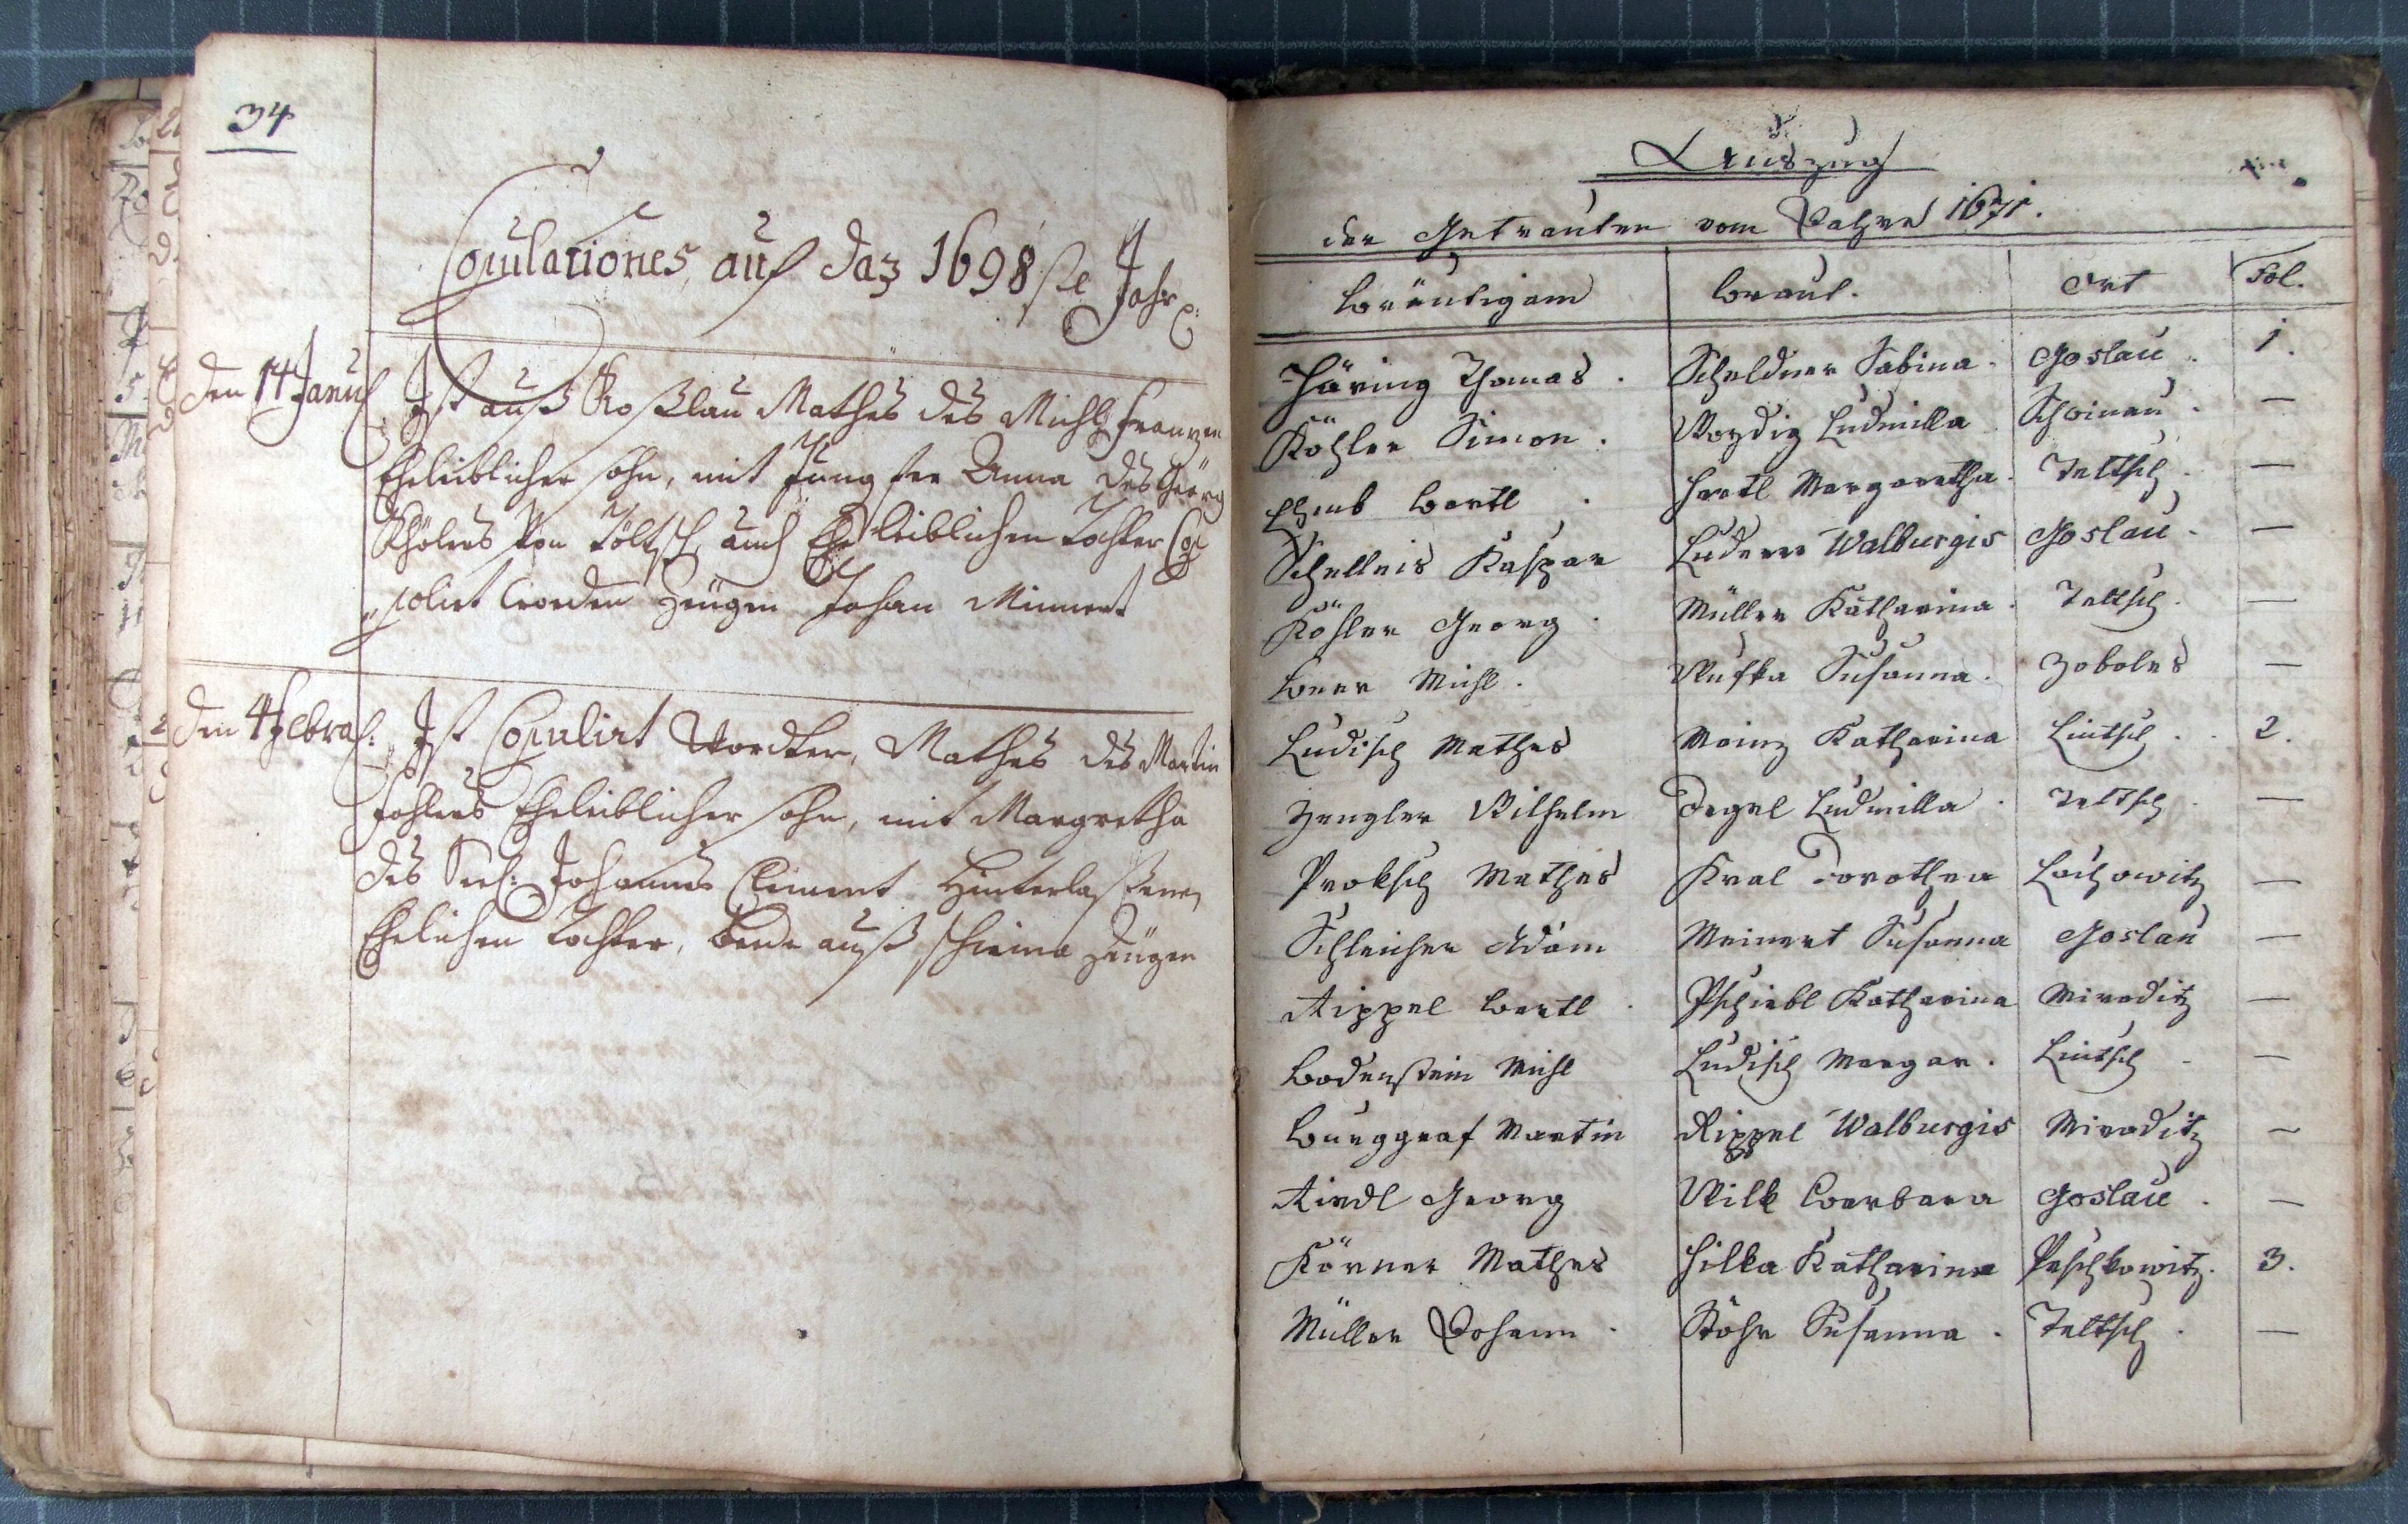 34
Copulationes auf daz 1698ste Jahr
den 14 Januar
Ist auß Koßlau Mathes des Michl Franzen
Eheleiblicher sohn, mit Jungfer Anna des Geörg
Köhlers Von Töltsch auch Eheleiblichen Tochter Co
polirt worden Zeugen Johan Minnert
den 4 Febra:
Ist Copulirt worden, Mathes des Martin
Johlers Eheleiblicher sohn, mit Margretha
des Seel: Johannes Climent Hinterlaßenen
Ehelichen Tochter, beede auß Zeugen
Auszug
der Getrauten vom Jahre 1671.
Bräutigam Braut. Ort Fol.
Häring Thomas. Scheldner Sabina. Goslau. 1.
Köhler Simon. Ludmilla Schoinau. —
Bartl. Hartl Margaretha. Teltsch. —
Schelleis Kaspar Luderer Walburgis Goslau. —
Köhler Georg. Müller Katharina. Teltsch. —
Beer Michl. Susanna. Zoboles —
Ludisch Mathes Mainz Katharina Lintsch.. 2.
Zengler Wilhelm Degel Ludmilla. Teltsch. —
Proksch Mathes Kral Dorothea Lochowitz —
Schleicher Adam Meinert Susanna Goslau —
Rippel Bartl. Pschiebl Katharina Miroditz —
Bodenstein Michl Ludisch Margar. Lintsch —
Burggraf Martin Rippel Walburgis Miroditz —
Riedl Georg Wilk Barbara Goslau. —
Körner Mathes Hilka Katharina Peschkowitz. 3.
Müller Johann. Stöhr Susanna. Teltsch. —